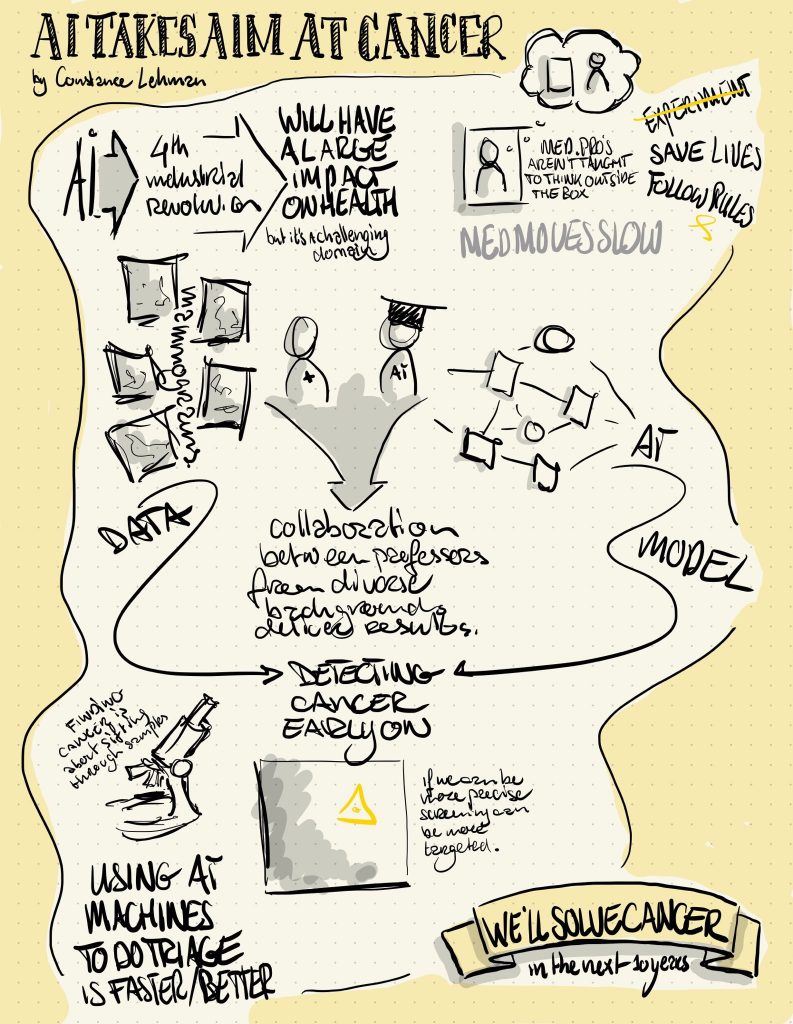 AI TAKES AIM AT CANCER
by Constance Lehman
Ai
4th
industrial
revolution
WILL HAVE
A LARGE
IMPACT
ON HEALTH
but it's a challenging
domain
MED. PRO'S
AREN'T TAUGHT
TO THINK OUTSIDE
THE BOX
EXPERIMENT
SAVE LIVES
FOLLOW RULES
MED MOVES SLOW
mammograms
Ai
AI
DATA
MODEL
collaboration
between professors
from diverse
backgrounds
deliver results.
DETECTING
CANCER
EARLY ON
FINDING
CANCER is
about sifting
through samples
if we can be
more precise
screening can
be more
targeted.
USING AI
MACHINES
TO DO TRIAGE
IS FASTER/BETTER
WE'LL SOLVE CANCER
in the next 10 years